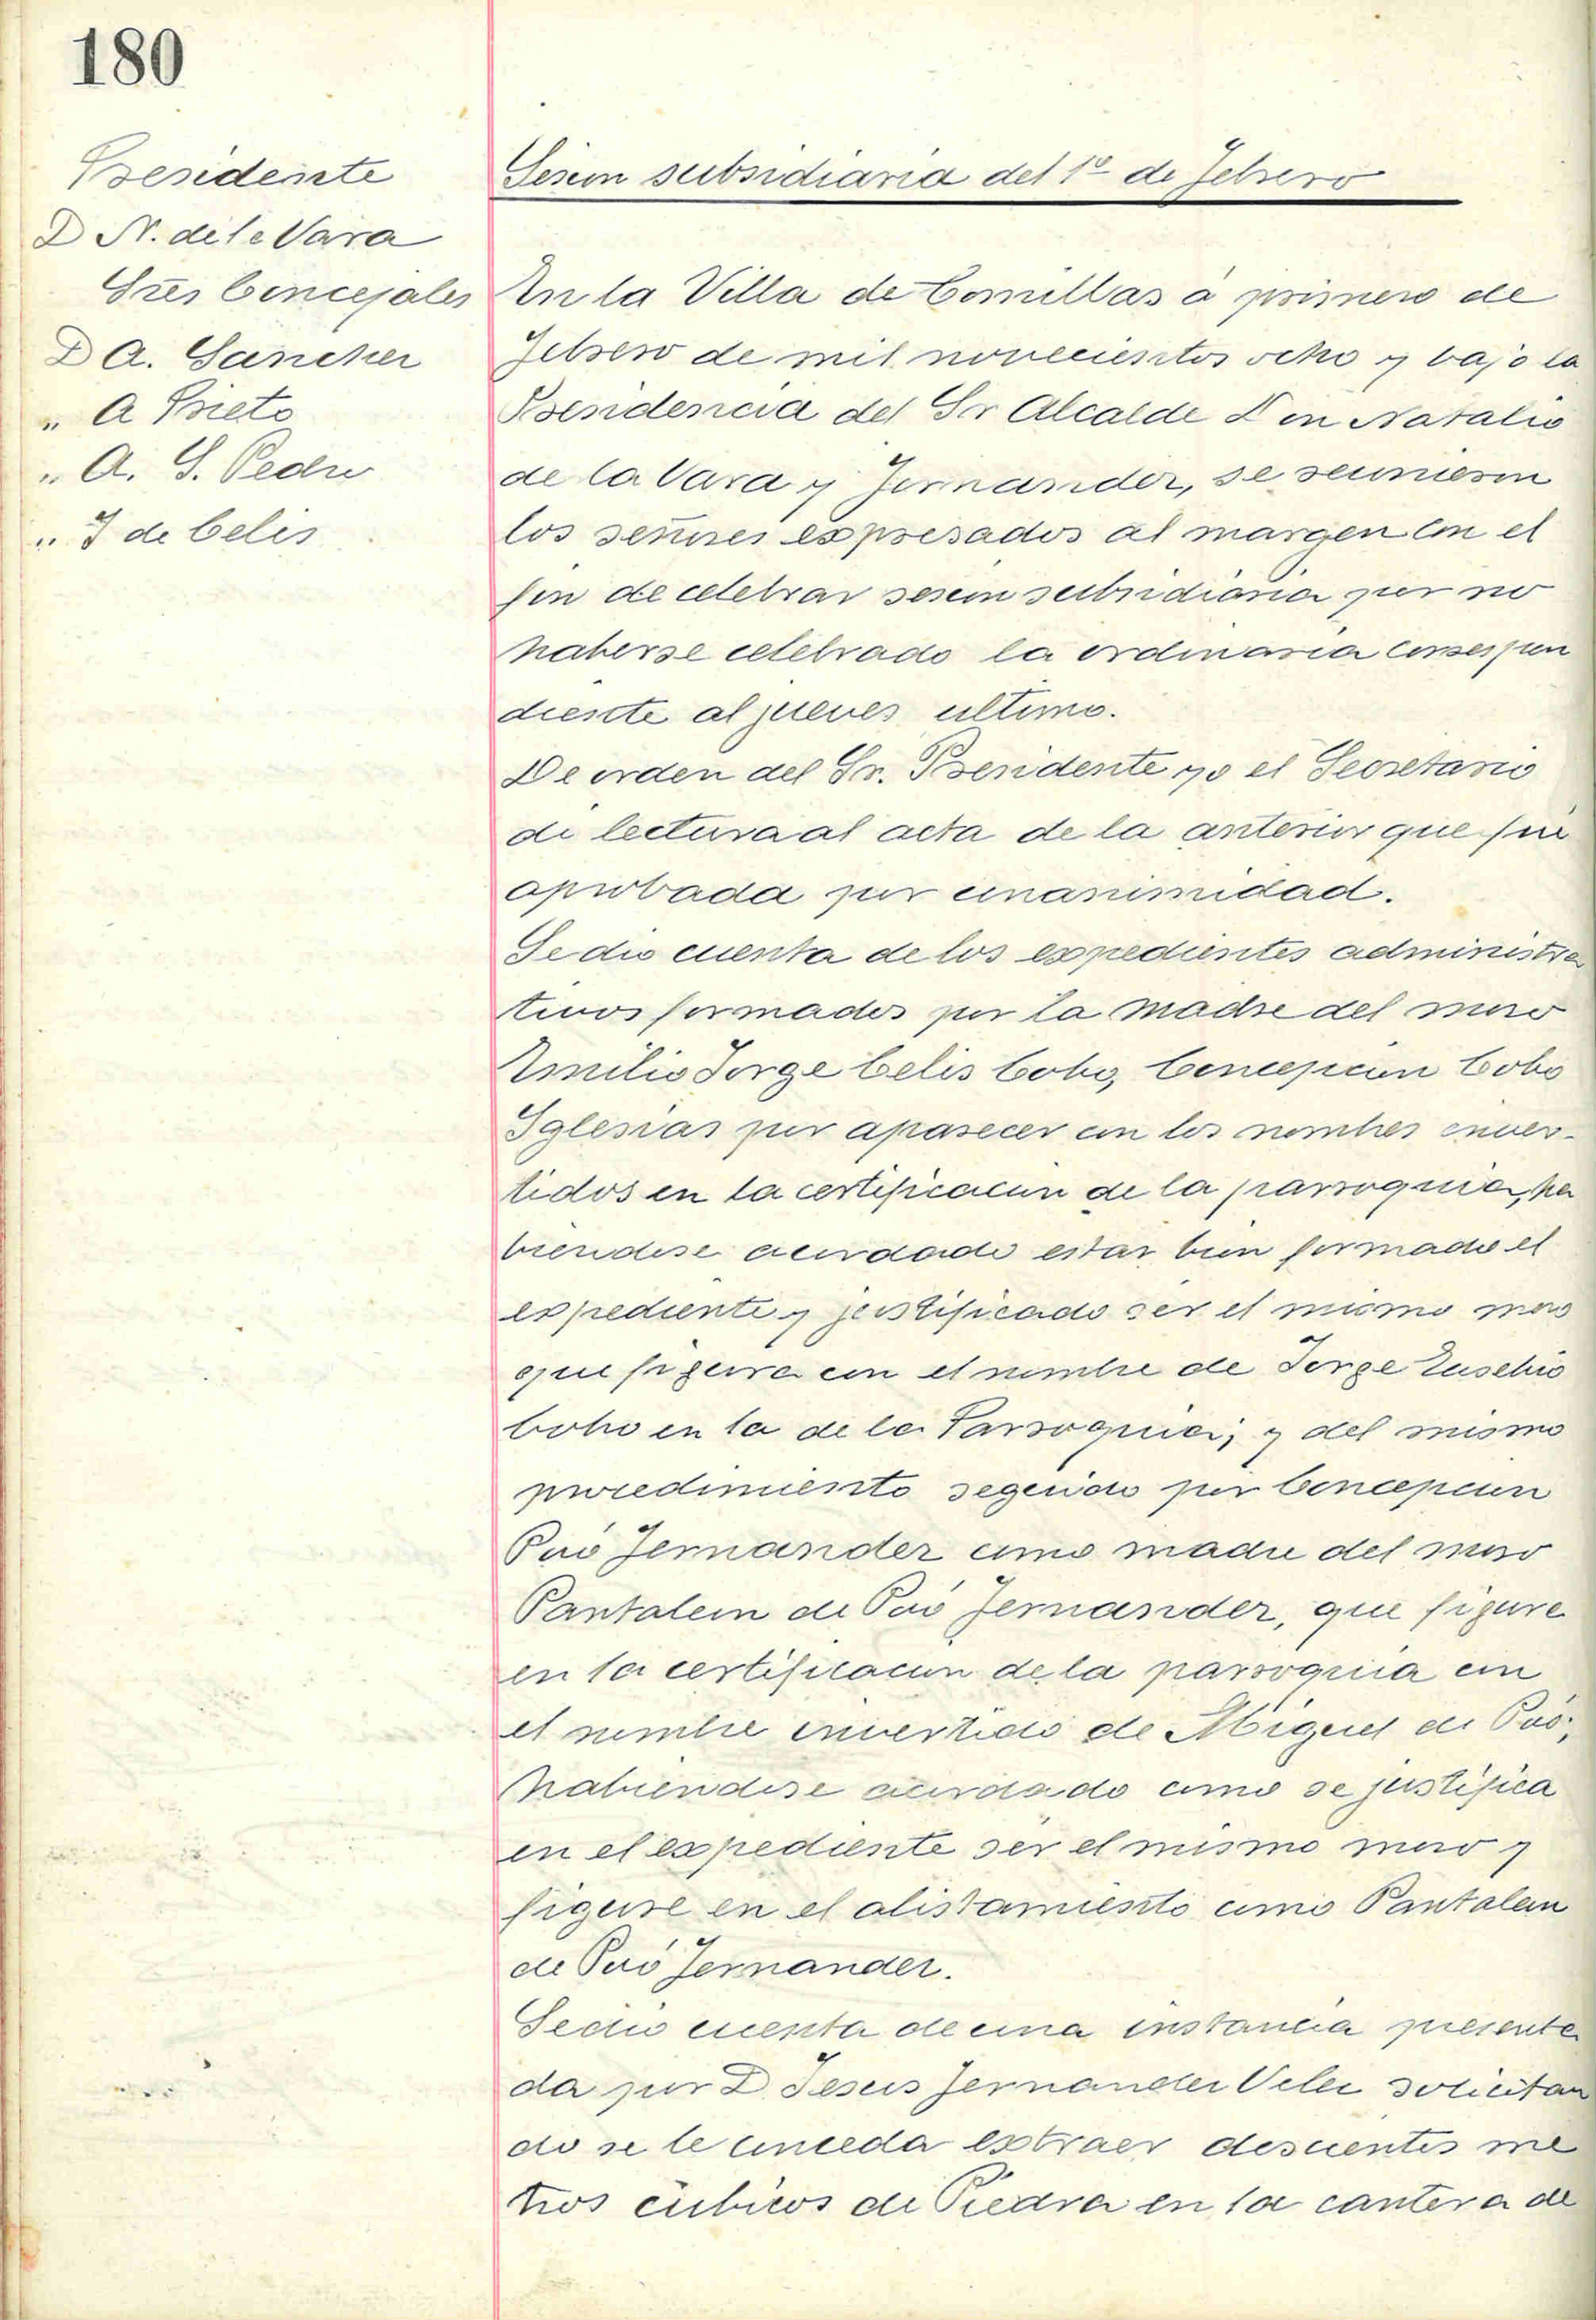 180
Presidente
D N. de la Vara
Sres Concejales
D A. Sanchez
" A Prieto
" A. S. Pedro
" J de Celis
Sesion subsidiaria del 1º de Febrero
En la Villa de Comillas á primero de
Febrero de mil novecientos ocho y bajo la
Presidencia del Sr Alcalde Don Natalio
de la Vara y Fernandez, se reunieron
los señores expresados al margen con el
fin de celebrar sesion subsidiaria por no
haberse celebrado la ordinaria correspon
diente al jueves ultimo.
De orden del Sr. Presidente yo el Secretario
di lectura al acta de la anterior que fué
aprobada por unanimidad.
Se dio cuenta de los expedientes administra
tivos formados por la madre del mozo
Emilio Jorge Celis Cobo, Concepcion Cobo
Iglesias por aparecer con los nombres inver-
tidos en la certificacion de la parroquia, ha
biendose acordado estar bien formado el
expediente y justificado ser el mismo mozo
que figura con el nombre de Jorge Eusebio
Cobo en la de la Parroquia; y del mismo
procedimiento seguido por Concepcion
Puó Fernandez como madre del mozo
Pantaleon de Puó Fernandez, que figura
en la certificacion de la parroquia con
el nombre invertido de Miguel de Puó,
habiendose acordado como se justifica
en el expediente ser el mismo mozo y
figure en el alistamiento como Pantaleon
de Puó Fernandez.
Se dió cuenta de una instancia presenta
da por D. Jesus Fernandez Velez solicitan
do se le conceda extraer doscientos me
tros cúbicos de Piedra en la cantera de